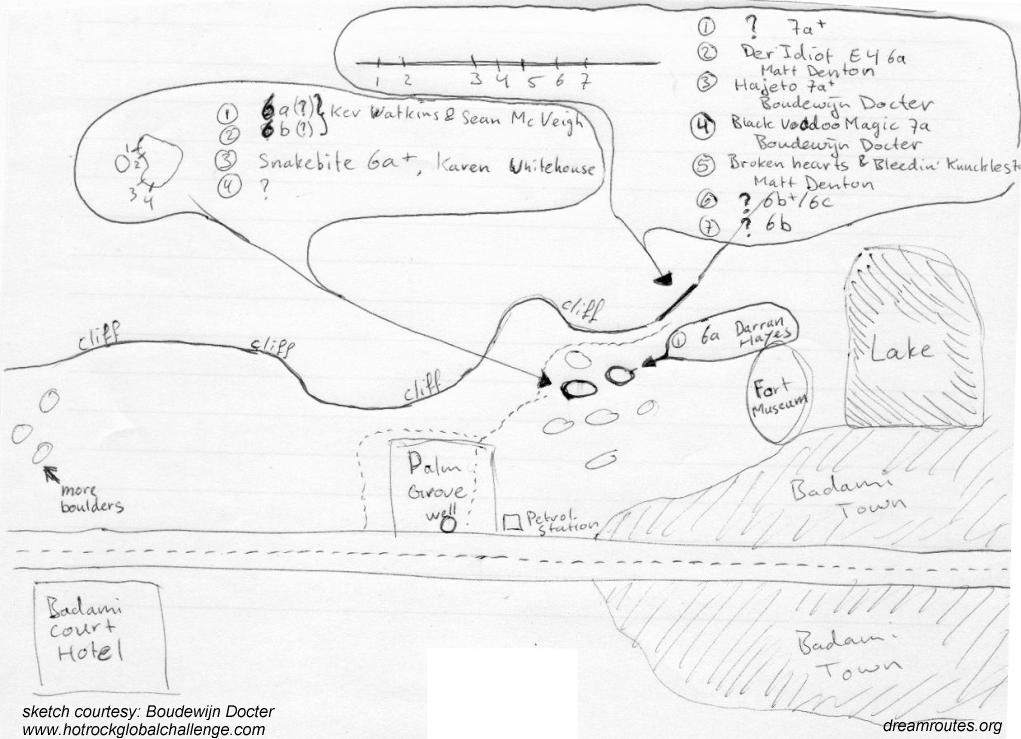 ① ? 7a+
② Der Idiot E4 6a
Matt Denton
③ Hajeto 7a+
Boudewijn Docter
④ Black Voodoo Magic 7a
Boudewijn Docter
⑤ Broken hearts & Bleedin' Knuckles
Matt Denton
⑥ ? 6b+/6c
⑦ ? 6b
1 2 3 4 5 6 7
① 6a(?)} Kev Watkins & Sean McVeigh
② 6b(?)}
③ Snakebite 6a+, Karen Whitehouse
④ ?
1 2
3 4
cliff
cliff
cliff
cliff
① 6a Darran
Hayes
Lake
Fort
Museum
more
boulders
Palm
Grove
well
Petrol
Station
Badami
Town
Badami
Court
Hotel
Badami
Town
sketch courtesy: Boudewijn Docter
www.hotrockglobalchallenge.com
dreamroutes.org